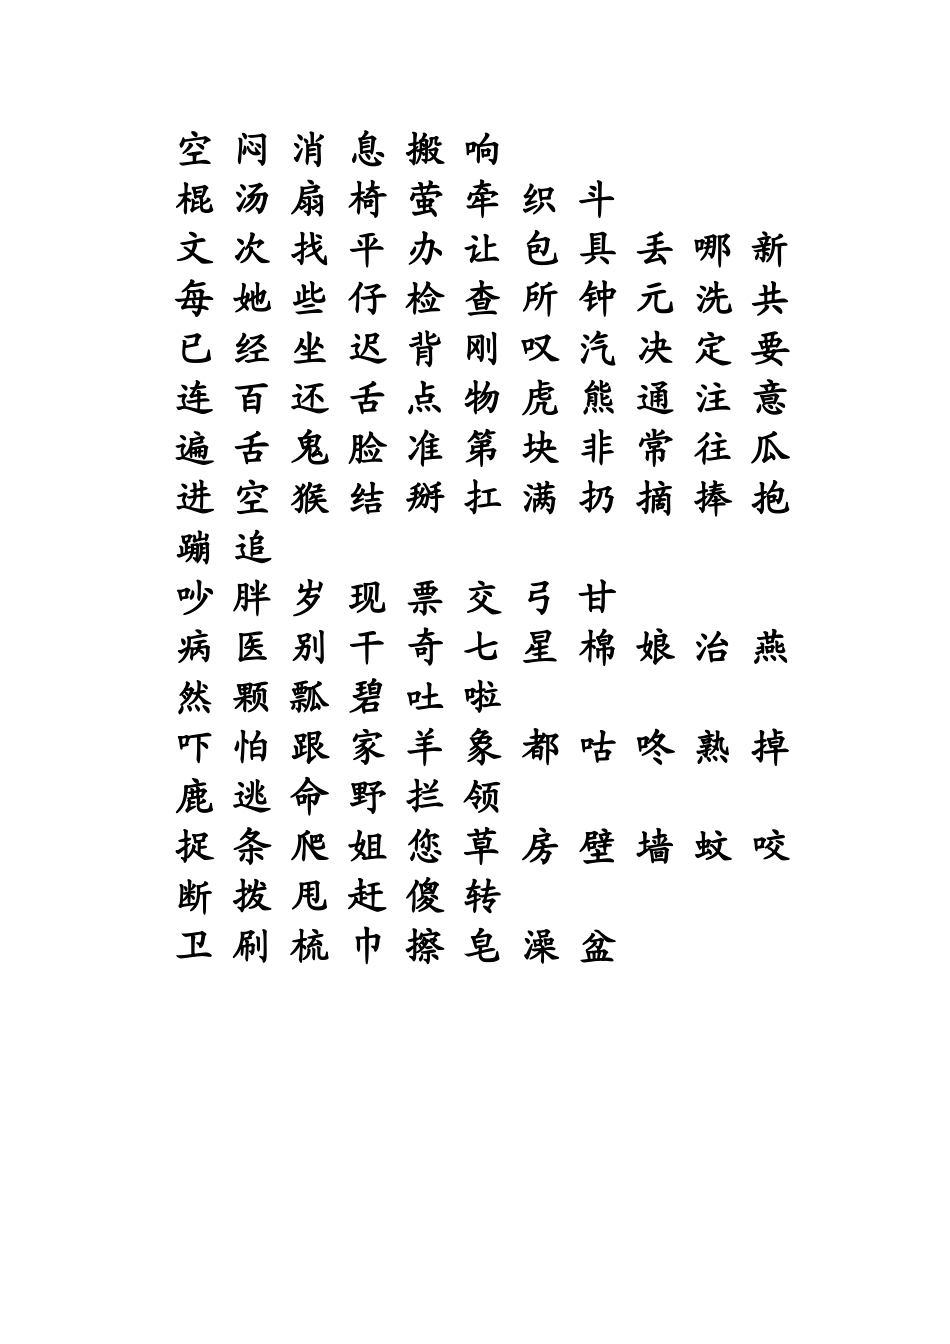 空 闷 消 息 搬 响
棍 汤 扇 椅 萤 牵 织 斗
文 次 找 平 办 让 包 具 丢 哪 新
每 她 些 仔 检 查 所 钟 元 洗 共
已 经 坐 迟 背 刚 叹 汽 决 定 要
连 百 还 舌 点 物 虎 熊 通 注 意
遍 舌 鬼 脸 准 第 块 非 常 往 瓜
进 空 猴 结 掰 扛 满 扔 摘 捧 抱
蹦 追
吵 胖 岁 现 票 交 弓 甘
病 医 别 干 奇 七 星 棉 娘 治 燕
然 颗 瓢 碧 吐 啦
吓 怕 跟 家 羊 象 都 咕 咚 熟 掉
鹿 逃 命 野 拦 领
捉 条 爬 姐 您 草 房 壁 墙 蚊 咬
断 拨 甩 赶 傻 转
卫 刷 梳 巾 擦 皂 澡 盆